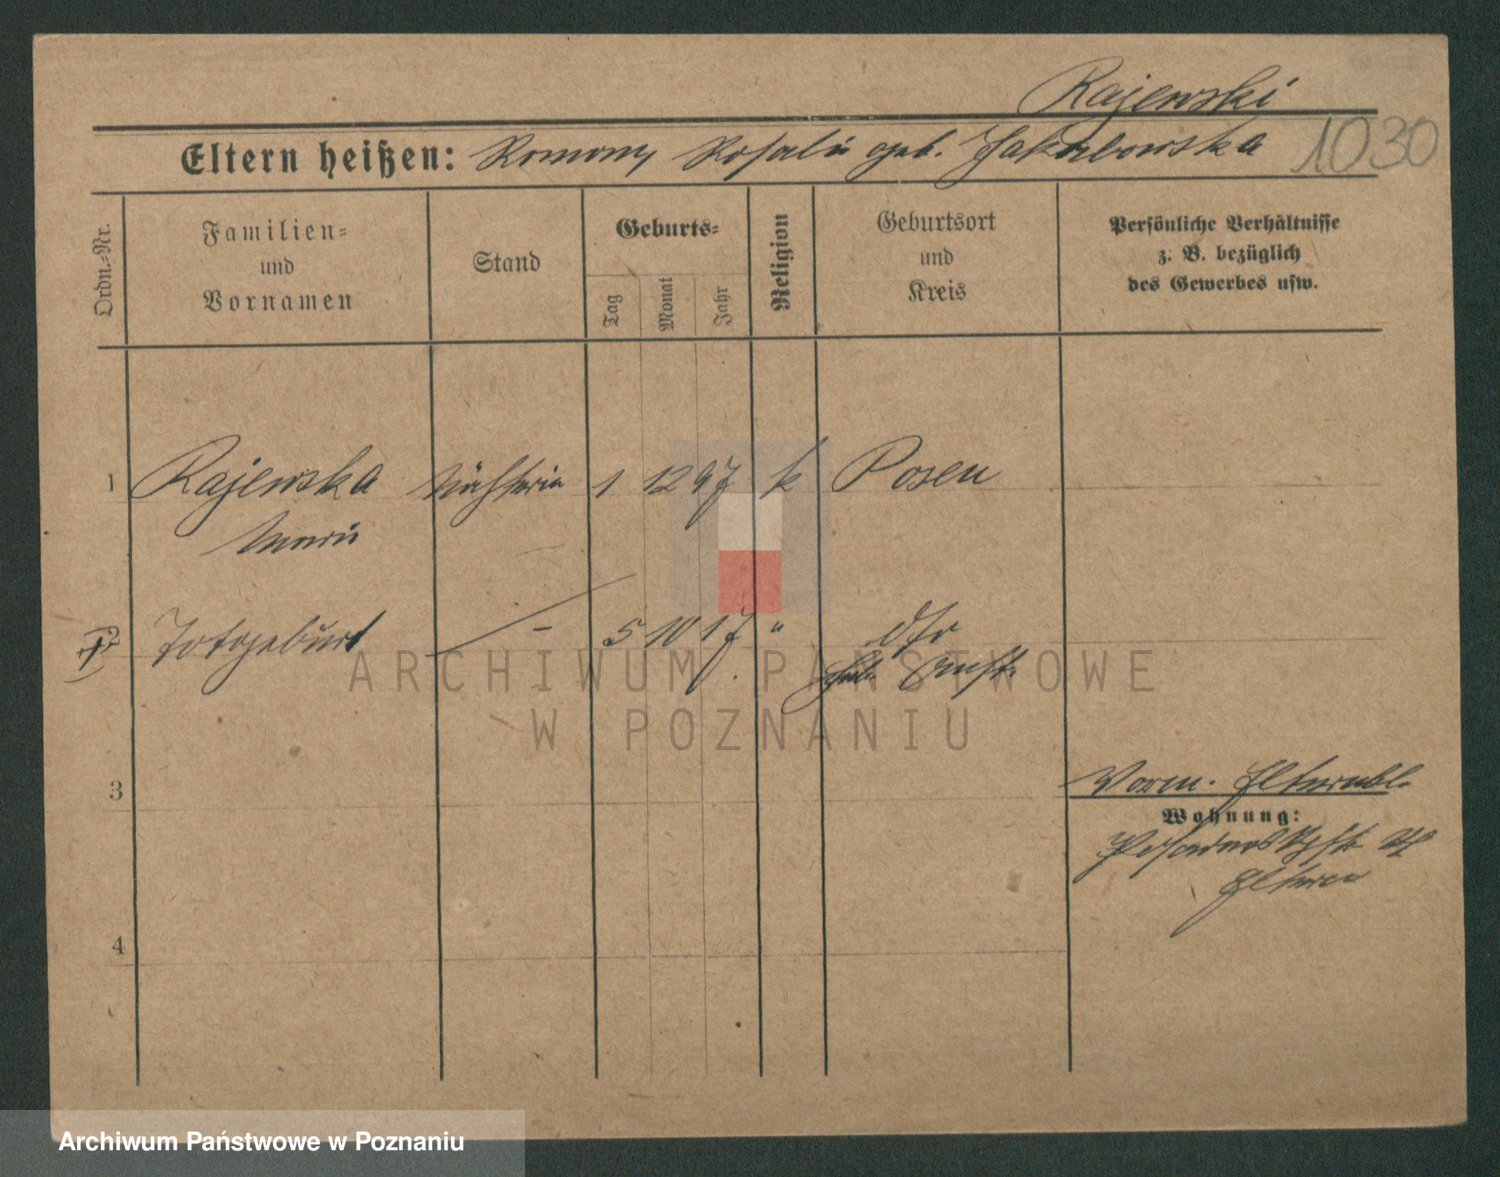 Rajewski
Eltern heißen: Roman, Rosalie geb. Jakubowska 1030
Ordn.-Nr.
Familien-
und
Vornamen
Stand
Geburts-
Tag
Monat
Jahr
Religion
Geburtsort
und
Kreis
Persönliche Verhältnisse
z. B. bezüglich
des Gewerbes usw.
1 Rajewska Nähterin 1 12 97 k Posen
Marie
2 Totgeburt - 5 10 17. "
3
Vorm. Elternbl.
Wohnung:
Eltern
4
ARCHIWUM PAŃSTWOWE
W POZNANIU
Archiwum Państwowe w Poznaniu